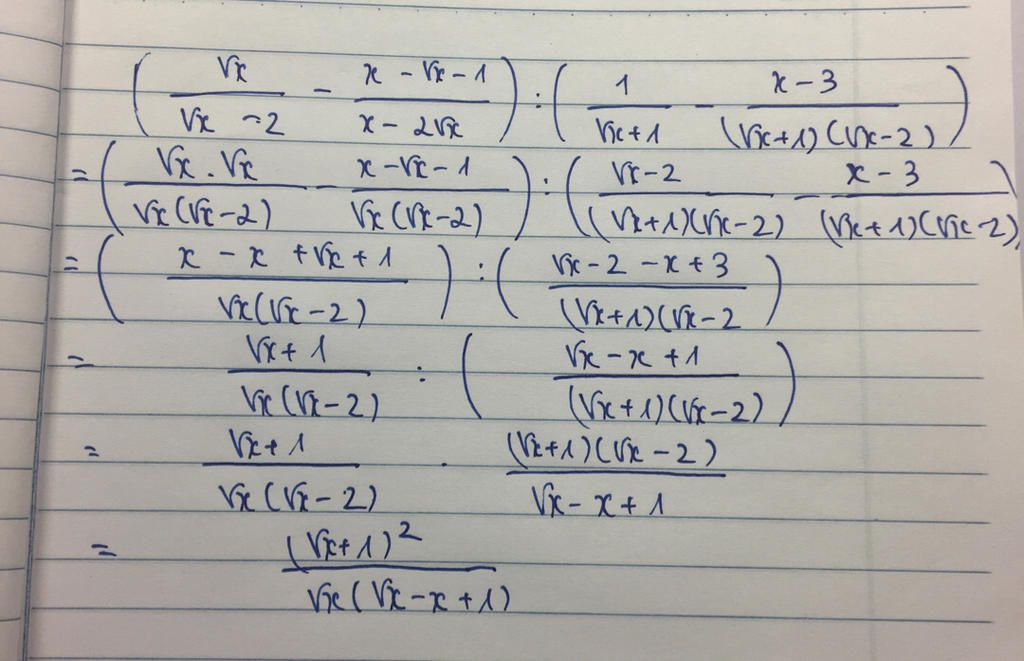 ( √x / (√x - 2) - (x - √x - 1) / (x - 2√x) ) : ( 1 / (√x+1) - (x - 3) / ((√x+1)(√x-2)) )
= ( √x . √x / (√x(√x-2)) - (x-√x-1) / (√x(√x-2)) ) : ( (√x-2) / ((√x+1)(√x-2)) - (x-3) / ((√x+1)(√x-2)) )
= ( (x - x + √x + 1) / (√x(√x-2)) ) : ( (√x-2 - x + 3) / ((√x+1)(√x-2 )
= (√x+1) / (√x(√x-2)) : ( (√x - x + 1) / ((√x+1)(√x-2)) )
= (√x+1) / (√x(√x-2)) . (√x+1)(√x-2) / (√x - x + 1)
= (√x+1)² / (√x(√x-x+1))